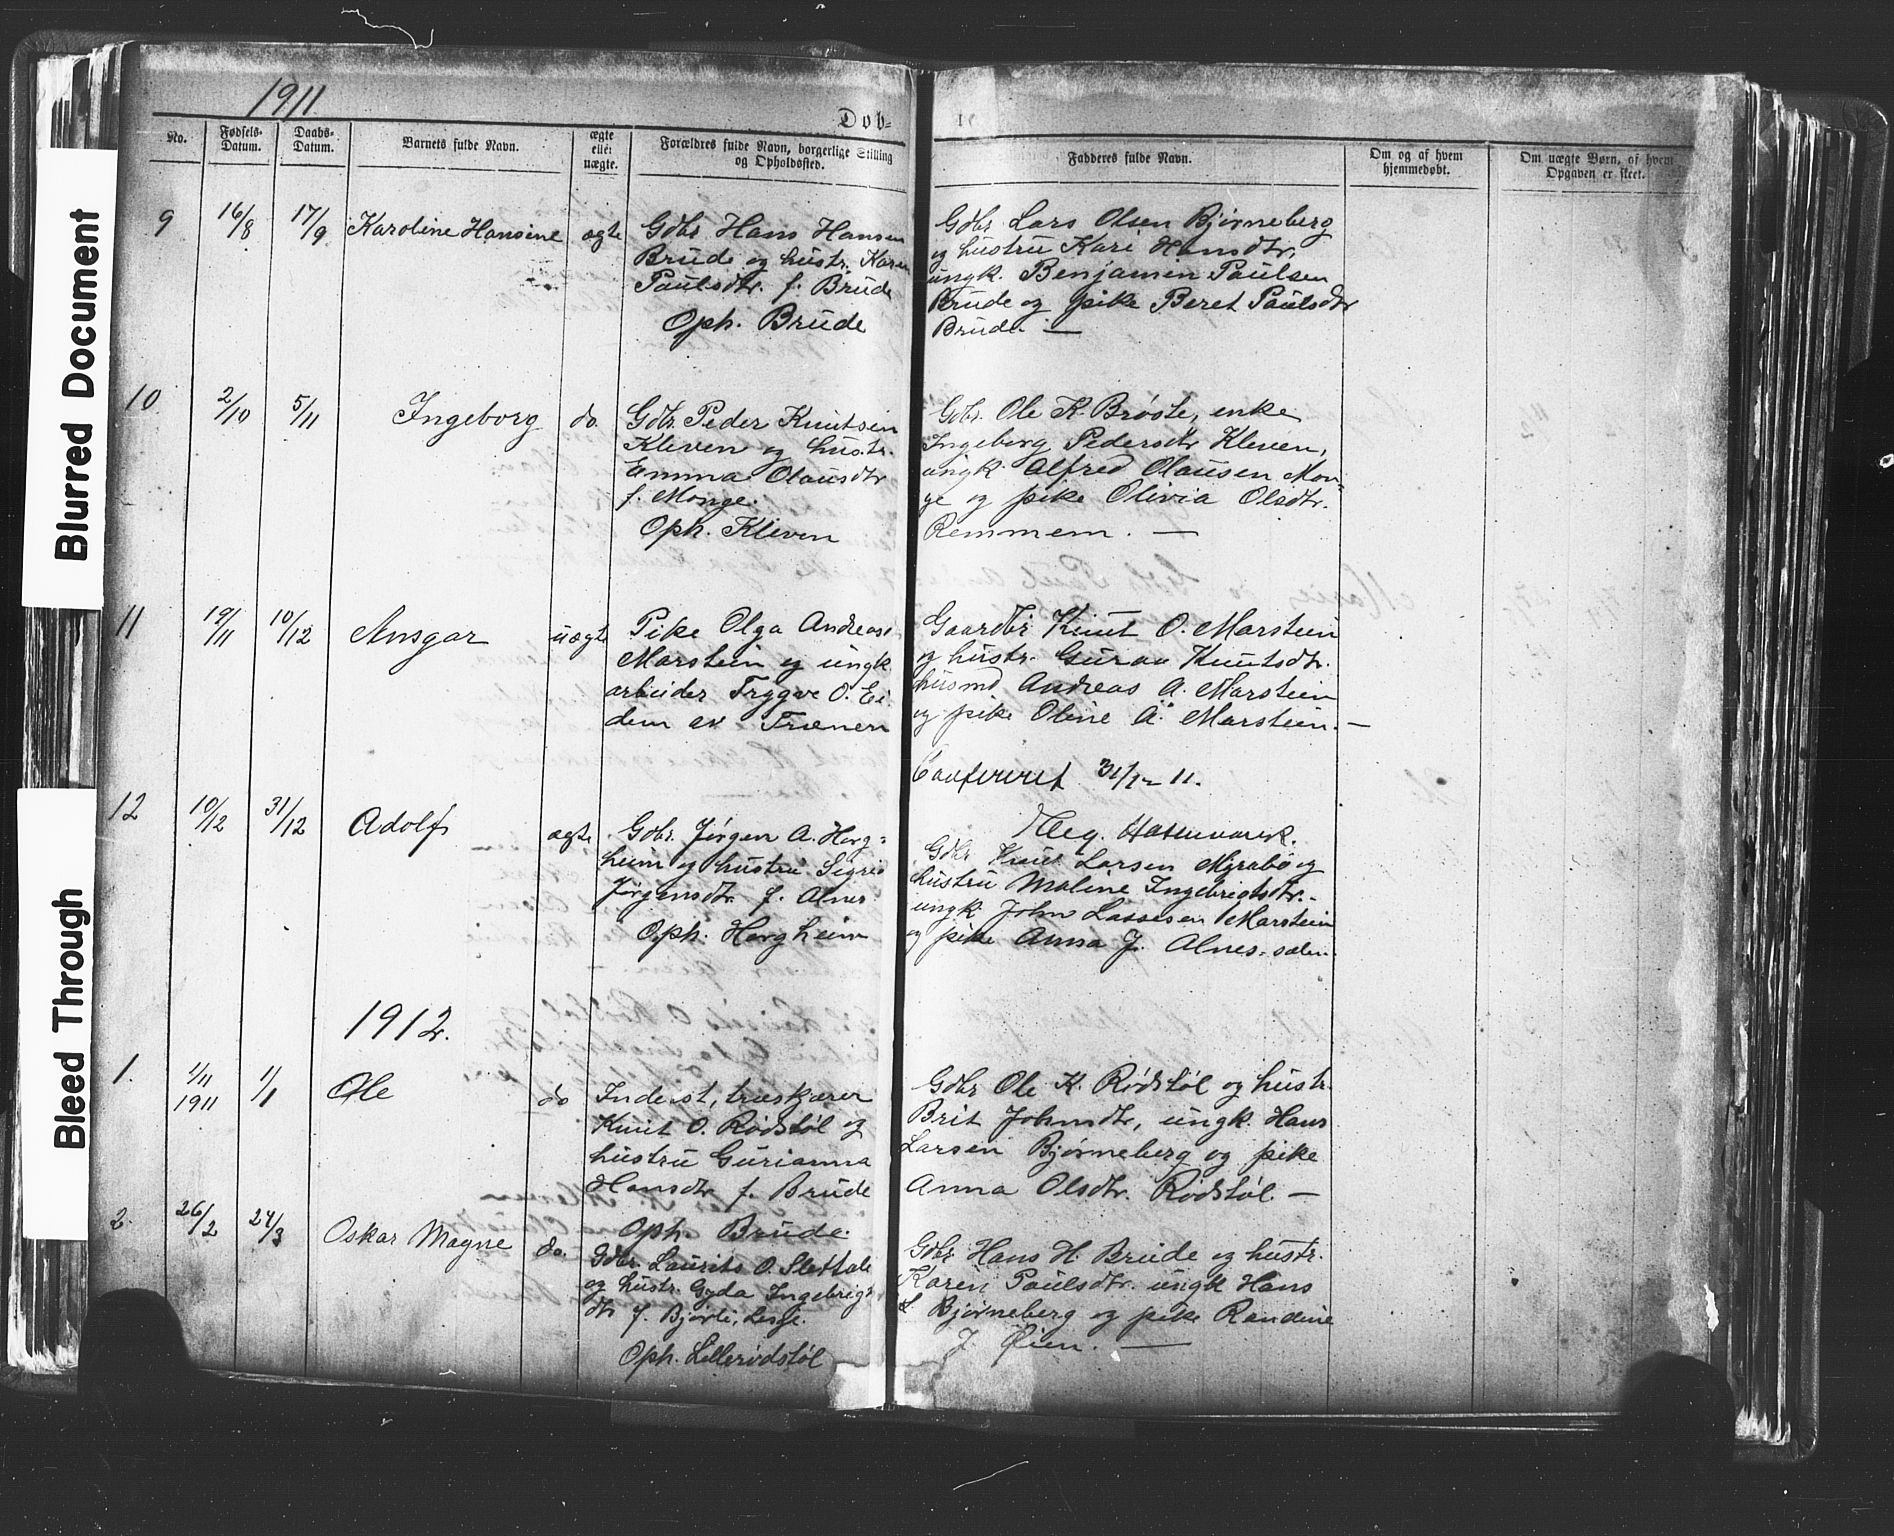 Blurred Document
Bleed Through
1911
Dob-
No.
Fødsels-
Datum.
Daabs-
Datum.
Barnets fulde Navn.
ægte
eller
uægte.
Forældres fulde Navn, borgerlige Stilling
og Opholdssted.
Fadderes fulde Navn.
Om og af hvem
hjemmedøbt.
Om uægte Børn, af hvem
Opgaven er skeet.
9 16/8 17/9 Karoline Hansine ægte
Gdbr Hans Hansen
Brude og hustr. Karen
Paulsdtr. f. Brude
Oph. Brude
Gdbr Lars Olsen Bjørneberg
og hustru Kari Hansdtr,
ungk. Benjamin Paulsen
Brude og pike Beret Paulsdtr
Brude. —
10 2/10 5/11 Ingeborg do.
Gdbr. Peder Knutsen
Kleven og hustr.
Emma Olausdtr
f. Monge.
Oph. Kleven
Gdbr. Ole K. Brøste, enke
Ingeborg Pedersdtr Kleven,
ungk. Alfred Olausen Mon-
ge og pike Olivia Olsdtr.
Remmem. —
11 19/11 10/12 Ansgar uægte
Pike Olga Andreas.
Marstein og ungk.
arbeider Trygve O. Ei-
dem av Trænen
Gaardbr Knut O. Marstein
og hustr. Guran Knutsdtr.
husmd Andreas A. Marstein
og pike Oline A. Marstein. —
Confereret 31/12 11.
12 10/12 31/12 Adolf ægte
Gdbr. Jørgen A. Horg-
heim og hustru Sigrid
Jørgensdtr. f. Alnes
Oph. Horgheim
Gdbr Knut Larsen Myrabø og
hustru Maline Ingebrigtsdtr.-
ungk. John Lassesen Marstein
og pike Anna J. Alnes-sæter.
1912.
1. 2/11 1911 1/1 Ole do
Inderst, træskjærer
Knut O. Rødstøl og
hustru Gurianna
Hansdtr f. Brude
Oph. Brude.
Gdbr Ole K. Rødstøl og hustr.
Brit Johnsdtr, ungk. Hans
Larsen Bjørneberg og pike
Anna Olsdtr. Rødstøl. —
2. 26/2 24/3 Oskar Magne do.
Gdbr. Laurits O. Slettale
og hustr. Gyda Ingebrigts
dtr f. Bjorli, Lesje.
Oph. Lillerødstøl
Gdbr Hans H. Brude og hustr.
Karen Paulsdtr. ungk Hans
L. Bjørneberg og pike Randine
J. Øien. —